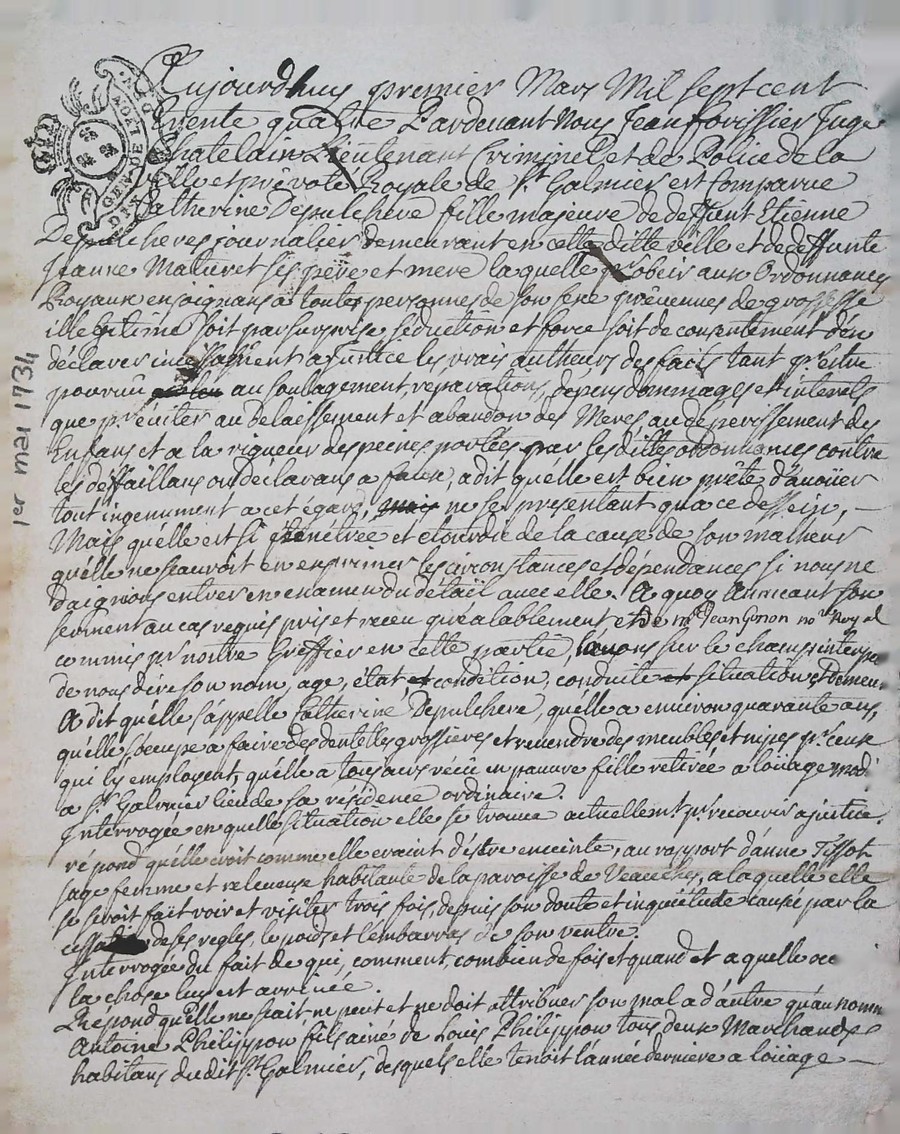 Aujourd'huy premier Mars Mil sept cent
trente quatre Pardevant Nous Jean forissier Juge
chatelain Lieutenant Criminel et de Police de la
ville et prévoté Royale de St Galmier est Comparue
Catherine Depulchere fille majeure de deffunt Etienne
Depulcheres journalier demeurant en cette ditte ville et de deffunte
Jeanne Mathevet ses père et mere laquelle pr obeir aux Ordonnances
Royaux enjoignans à toutes personnes de son sexe prévenues de grossesse
illegitime soit par surprise séduction et force soit de consentement d'en
déclarer incessament a justice les vrais autheurs des faits tant pr estre
pourvû au soulagement, reparations, depens dommages et interets
que pr éviter au délaissement et abandon des Meres, au déperissement des
Enfans et a la rigueur des peines portées par les dittes ordonnances contre
les déffaillans ou déclarans a faux, a dit quélle est bien prête d'avoüer
tout ingenument a cet égard, ne se presentant qua ce dessein, -
Mais quélle est si pénétrée et étourdie de la cause de son malheur
quélle ne sçauroit en exprimer les circonstances et dépendances si nous ne
daignons entrer en examen du détail avec elle. A quoy Auriant son
serment au cas requis pris et receu préalablement et de me Jean Gonon nore Royal
commis pr nôtre Greffier en cette partie, l'avons sur le champ interpe
de nous dire son nom, age, état, condition, conduite situation, et demeu
A dit quélle s'appelle Catherine Depulchere, quélle a environ quarante ans,
quélle s'ocupe a faire des dentelles grossieres et revendre des meubles et nipes pr ceux
qui les employent, quélle a tousjours vécû en pauvre fille retirée a loüage modi
a St Galmier lieu de sa résidence ordinaire.
Interrogée en quelle situation elle se trouve actuellement pr recourir a justice.
répond quélle croit comme elle craint d'éstre enceinte, au rapport d'anne Tissot
sage femme et releveuse habitante de la paroisse de Veauches, a laquelle elle
se seroit fait voir et visiter trois fois, depuis son doute et inquiétude causée par la
de ses regles, le poids et l'embarras de son ventre.
Interrogée du fait de qui, comment, combien de fois et quand et a quelle oc
la chose luy est arrivée.
Répond quélle ne sçait, ne peut et ne doit attribuer son mal a d'autre qu'au nomm
Antoine Philippon fils ainé de Louis Philippon tous deux Marchands
habitans dudit St Galmier, desquels elle tenoit l'année derniere a loüage -
1er mai 1734